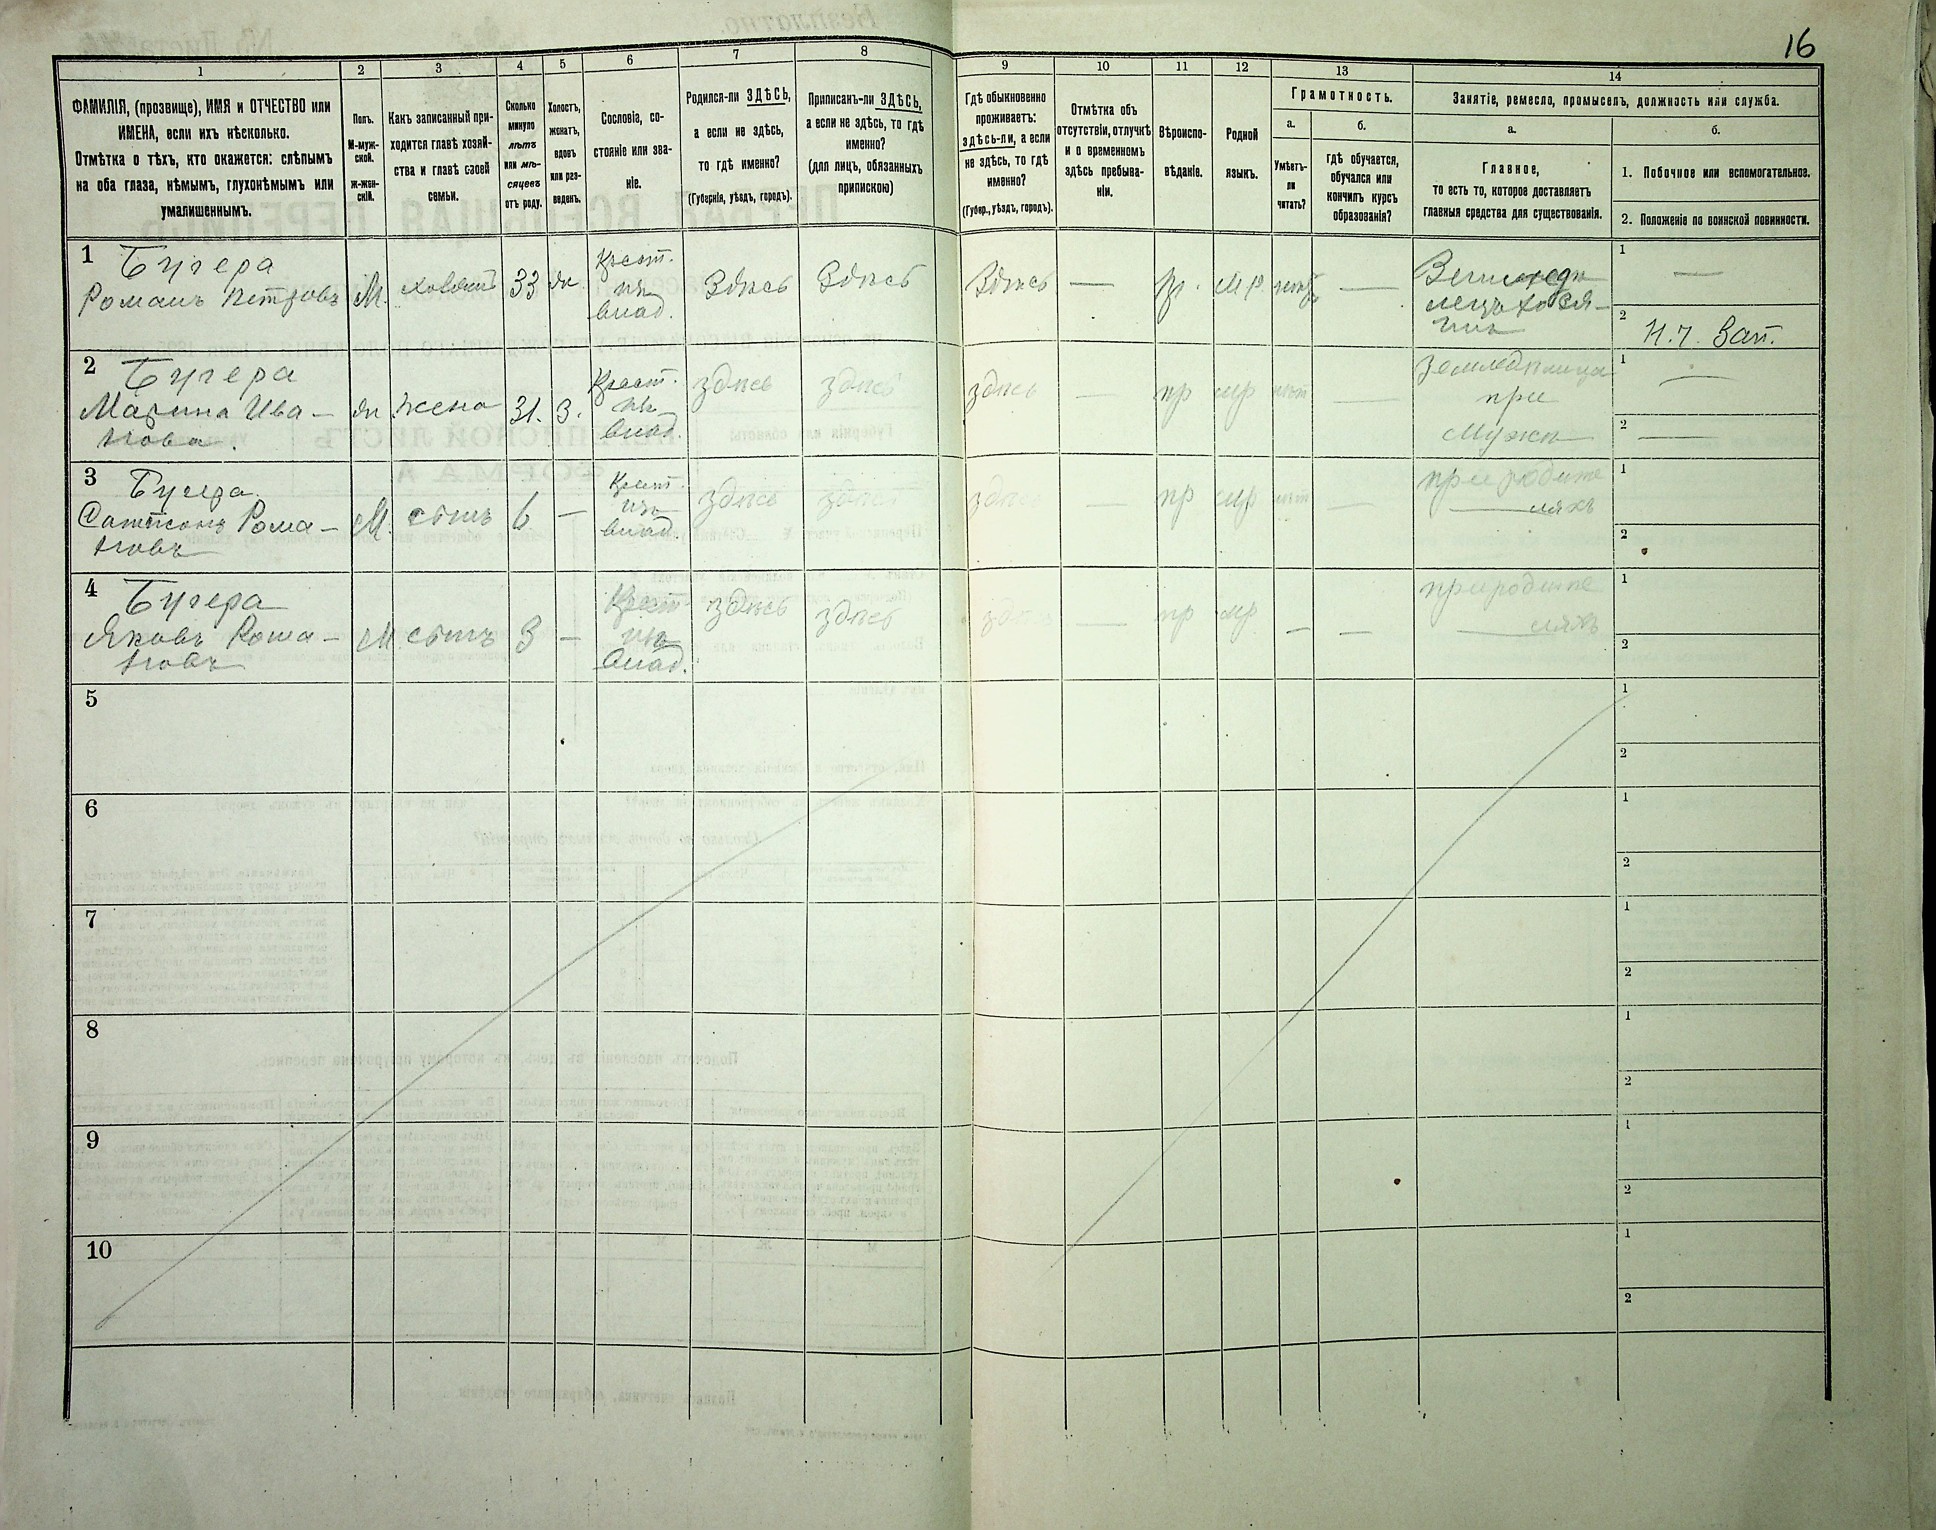 16
1
2
3
4
5
6
7
8
9
10
11
12
13
14
ФАМИЛІЯ, (прозвище), ИМЯ и ОТЧЕСТВО или
ИМЕНА, если ихъ нѣсколько.
Отмѣтка о тѣхъ, кто окажется: слѣпымъ
на оба глаза, нѣмымъ, глухонѣмымъ или
умалишеннымъ.
Полъ.
М-муж-
ской.
Ж-жен-
скій.
Какъ записанный при-
ходится главѣ хозяй-
ства и главѣ своей
семьи.
Сколько
минуло
лѣтъ
или мѣ-
сяцевъ
отъ роду.
Холостъ,
женатъ,
вдовъ
или раз-
веденъ.
Сословіе, со-
стояніе или зва-
ніе.
Родился-ли ЗДѢСЬ,
а если не здѣсь,
то гдѣ именно?
(Губернія, уѣздъ, городъ).
Приписанъ-ли ЗДѢСЬ,
а если не здѣсь, то гдѣ
именно?
(для лицъ, обязанныхъ
припискою)
Гдѣ обыкновенно
проживаетъ:
здѣсь-ли, а если
не здѣсь, то гдѣ
именно?
(Губер., уѣздъ, городъ).
Отмѣтка объ
отсутствіи, отлучкѣ
и о временномъ
здѣсь пребыва-
ніи.
Вѣроиспо-
вѣданіе.
Родной
языкъ.
Грамотность.
а.
Умѣетъ-
ли
читать?
б.
гдѣ обучается,
обучался или
кончилъ курсъ
образованія?
Занятіе, ремесло, промыселъ, должность или служба.
а.
Главное,
то есть то, которое доставляетъ
главныя средства для существованія.
б.
1. Побочное или вспомогательное.
2. Положеніе по воинской повинности.
1
Бугера
Романъ Петровъ
М.
хозяинъ
33
жн
Крест.
изъ
влад.
Здѣсь
Здѣсь
Здѣсь
—
пр.
мр.
—
хозя-
инъ
1
—
2
2
Бугера
Марина Ива-
нова.
жн
жена
31.
З.
Крест.
изъ
влад.
здѣсь
здѣсь
здѣсь
—
пр
мр
нѣт
—
земледѣлица
при
мужѣ
1
—
2
—
3
Бугера
Сампсонъ Рома-
новъ
М.
сынъ
6
—
Крест.
изъ
влад.
здѣсь
здѣсь
здѣсь
—
пр
мр
нѣт
—
при родите-
ляхъ
1
2
4
Бугера
Яковъ Рома-
новъ
М
сынъ
3
—
Крест.
изъ
влад.
здѣсь
здѣсь
здѣсь
—
пр
мр
—
—
при родите-
ляхъ
1
2
5
1
2
6
1
2
7
1
2
8
1
2
9
1
2
10
1
2